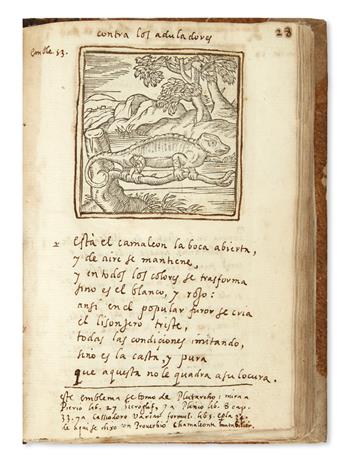 contra los aduladores
28
Emble. 53.
Està el camaleon la boca abierta,
y de aire se mantiene,
y en todos los colores se trasforma
sino es el blanco, y rojo:
ansi en el popular furor se cria
el lisonjero triste,
todas las condiciones imitando,
sino es la casta, y pura
que aquesta no le quadra a su locura.
Este emblema se tomo de Plutarcho: mira a
Pierio lib. 27 hierogl. y a Plinio lib. 8 cap.
33. y a Cassiodoro variar. formul. lib. 5.
de aqui se dixo un Proverbio Chamaeleonte mutabilior.